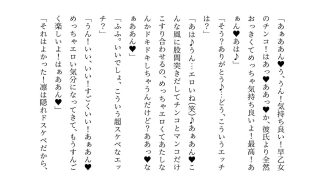 「あぁああん♥う、うん！気持ち良い！早乙女
のチンコ！はあっ♥ああっ♥か、彼氏より全然
おっきくてめっちゃ気持ち良いよ！最高！あ
ぁん♥あは♪」
「そう？ありがとう♪…どう、こういうエッチ
は？」
「あは♪うん…エロいね(笑)♪あぁあん♥こ
んな風に股間突きだしてチンコとマンコだけ
こすり合わせるの、めっちゃエロくてあたしな
んかドキドキしちゃうんだけど？ああっ♥な
ぁああん♥」
「ふふ。いいでしょ、こういう超スケベなエッ
チ？」
「うん！いい、いい！すごくいい！あぁあん♥
めっちゃエロい気分になってきて、もうすんご
く楽しいよ！はぁああん♥」
「それはよかった！凛は隠れドスケベだから、